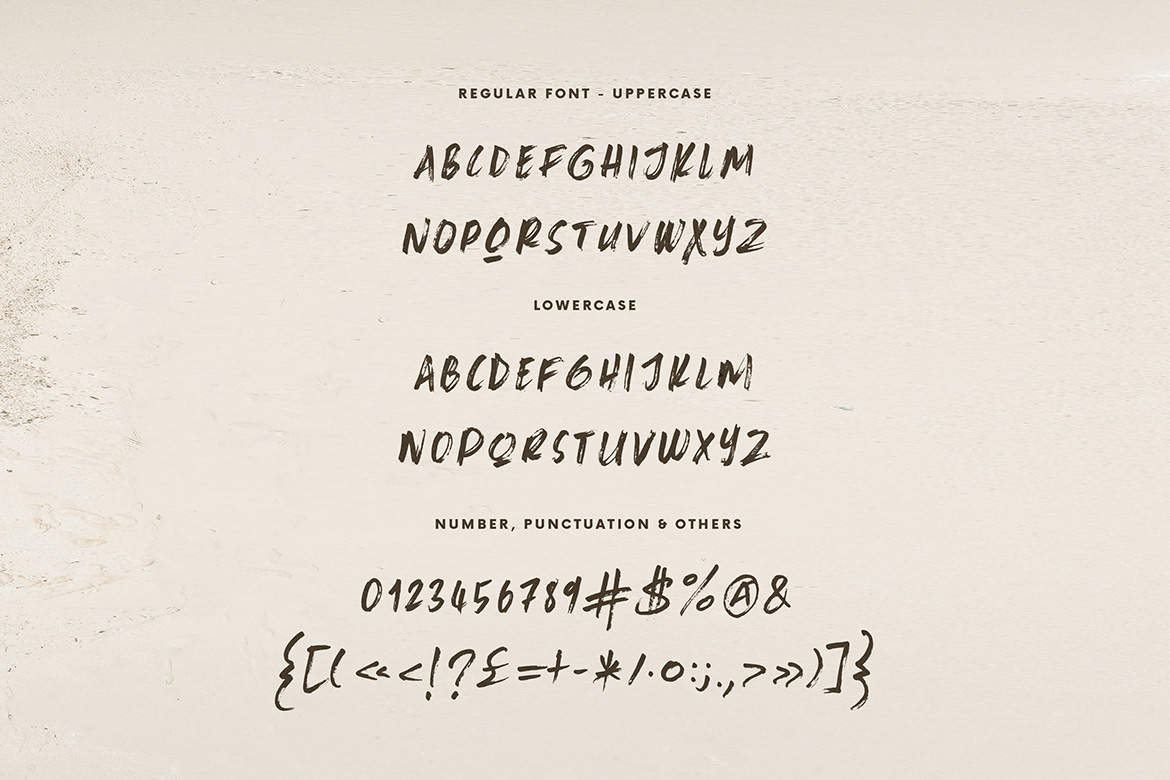 REGULAR FONT - UPPERCASE
ABCDEFGHIJKLM
NOPQRSTUVWXYZ
LOWERCASE
ABCDEFGHIJKLM
NOPQRSTUVWXYZ
NUMBER, PUNCTUATION & OTHERS
0123456789#$%@&
{[(«<!?£=+-*/·o:;.,>»)]}